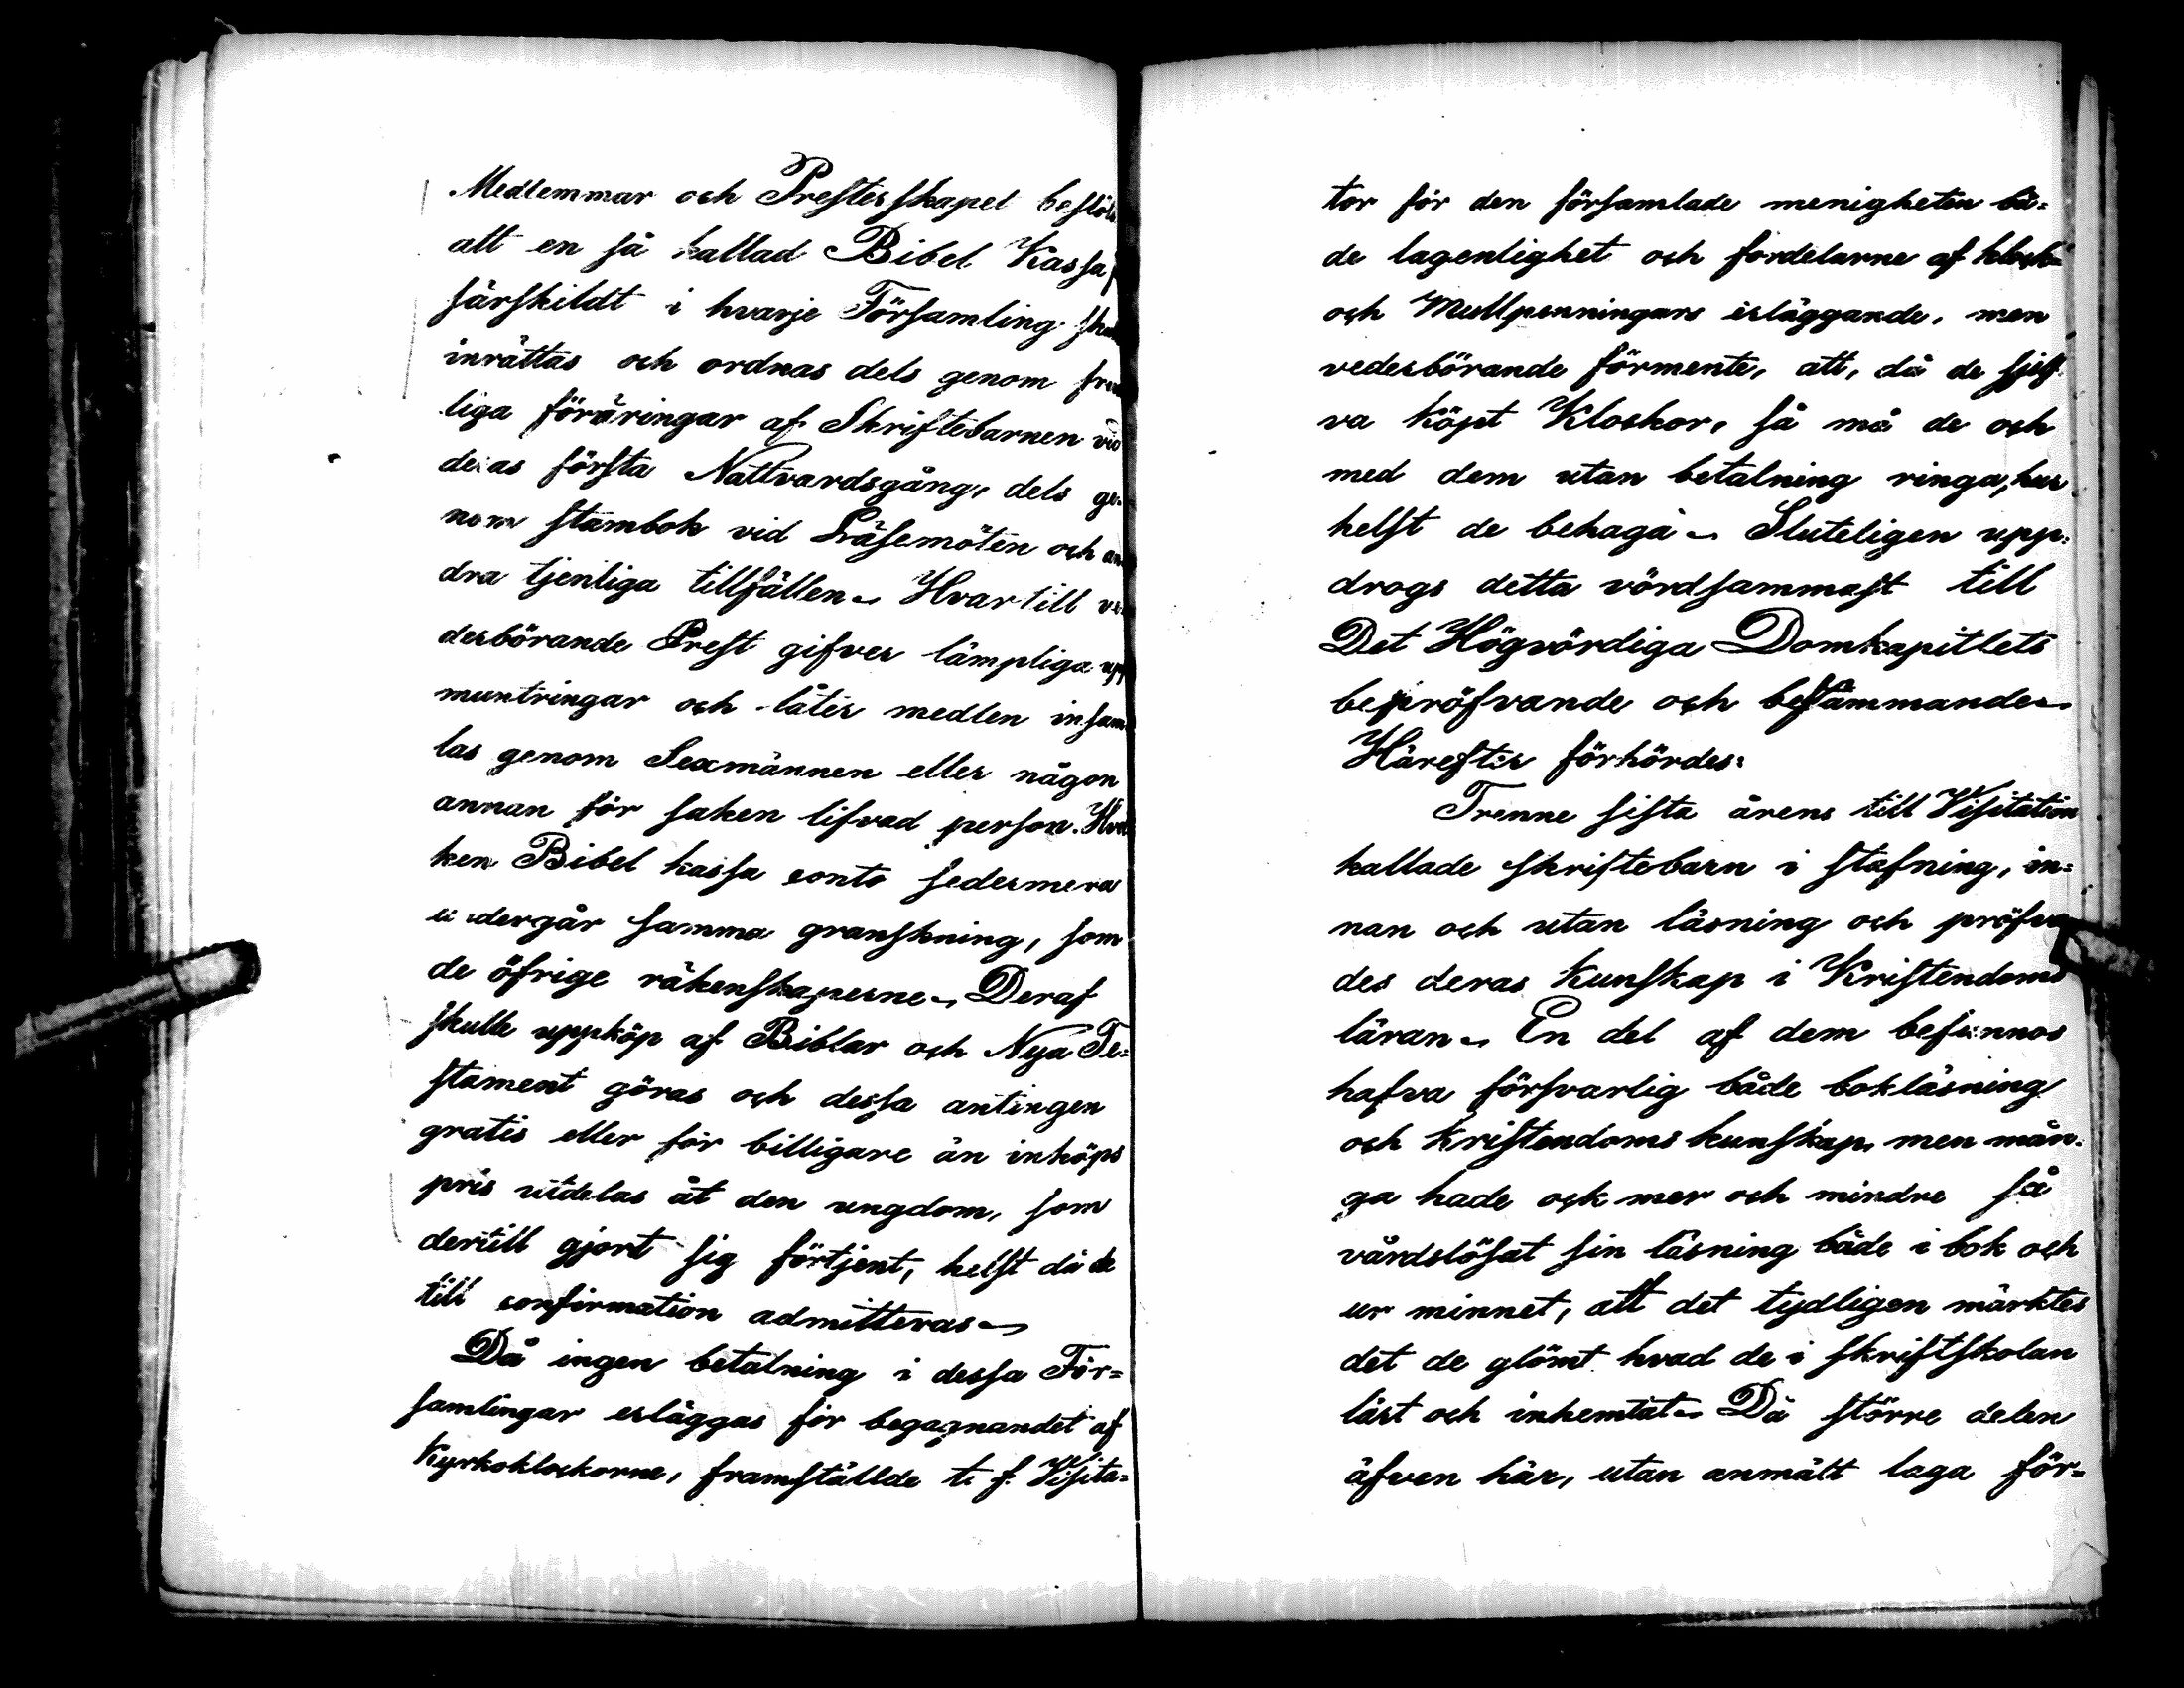 Medlemmar och Presterskapet beslöts
att en så kallad Bibel Kassa
särskildt i hvarje Församling
inrättas och ordnas dels genom
liga föräringar af Skriftebarnen vid
deras första Nattvardsgång, dels ge-
nom stambok vid Läsemöten och an
dra tjenliga tillfällen. Hvartill ve
derbörande Prest gifver lämpliga upp
muntringar och låter medlen insam
las genom Sexmännen eller någon
annan för saken lifvad person. Hvil
ken Bibel kassa conto sedermera
undergår samma granskning, som
de öfrige räkenskaperne. Deraf
skulle uppköp af Biblar och Nya Te=
stament göras och dessa antingen
gratis eller för billigare än inköps
pris utdelas åt den ungdom, som
dertill gjort sig förtjent, helst då de
till confirmation admitteras.
Då ingen betalning i dessa För=
samlingar erläggas för begagnandet af
Kyrkoklockorne, framställde t. f. Visita=
tor för den församlade menigheten bå=
de lagenlighet och fördelarne af klock=
och Mullpenningars erläggande, men
vederbörande förmente, att, då de sjelf
va köpt Klockor, så må de och
med dem utan betalning ringa, hur
helst de behaga. Sluteligen upp=
drogs detta vördsammast till
Det Högvördiga Domkapitlets
bepröfvande och bestämmande.
Härefter förhördes:
Trenne sista årens till Visitation
kallade skriftebarn i stafning, in=
nan och utan läsning och pröfva
des deras kunskap i Kristendoms
läran. En del af dem befunnos
hafva försvarlig både bokläsning
och Kristendoms kunskap, men mån=
ga hade ock mer och mindre så
vårdslösat sin läsning både i bok och
ur minnet, att det tydligen märktes
det de glömt hvad de i skriftskolan
lärt och inhemtat. Då större delen
äfven här, utan anmält laga för=